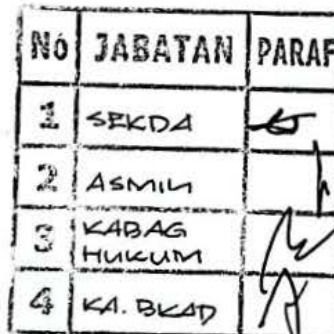 No JABATAN PARAF
1 SEKDA
2 ASMIN
3 KABAG
HUKUM
4 KA. BKAD